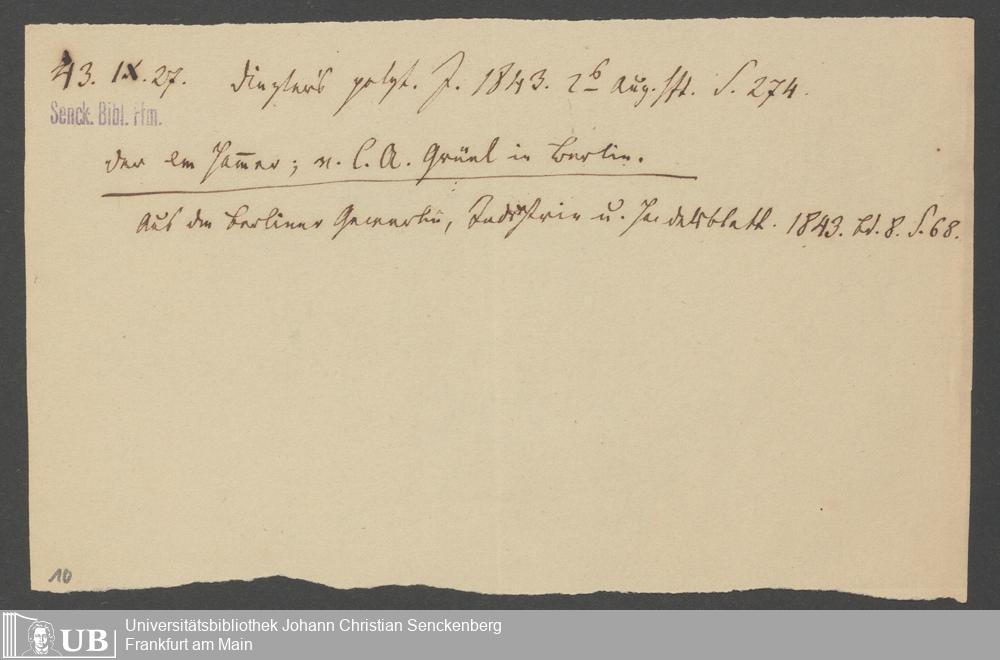 43. IX. 27. Dingler's polyt. J. 1843. 2b Aug. Hft. S. 274.
Senck. Bibl. Ffm.
der em Hammer; v. C. A. Grüel in Berlin.
Aus dem Berliner Gewerbe, Industrie u. Handelsblatt. 1843. Bd. 8. S. 68.
10
UB
Universitätsbibliothek Johann Christian Senckenberg
Frankfurt am Main